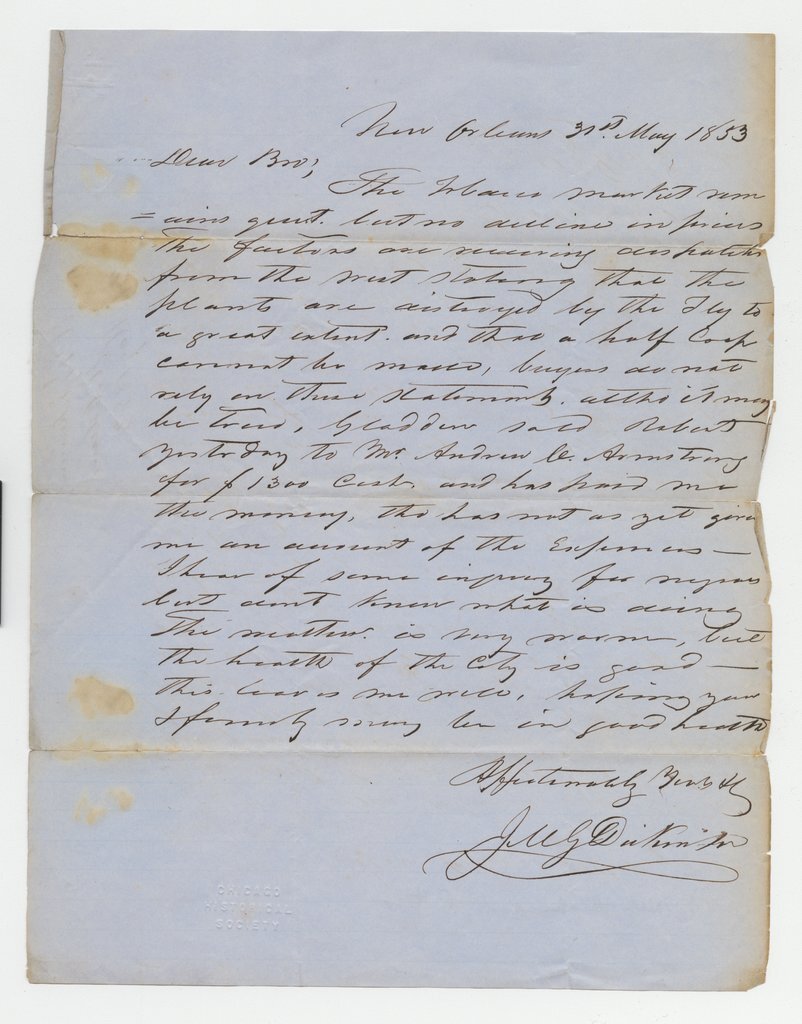 New Orleans 31st May 1853
Dear Bro;
The Tobacco market rem
=ains quiet. but no decline in prices
The factors are receiving despatches
from the west stating that the
plants are distroyed by the Fly to
a great extent. and that a half Crop
cannot be made, buyers do not
rely on these statements. altho it may
be true, Gladden sold Robert
yesterday to Mr. Andrew C. Armstrong
for $1300 Cash. and has paid me
the money, tho has not as yet given
me an account of the Expenses —
I hear of some inquiry for negroes
but dont know what is doing
The weather is very warm, but
the health of the City is good —
this leaves me well, hoping you
& family may be in good health
Affectionately Yours &c
J McG Dickinson
CHICAGO
HISTORICAL
SOCIETY